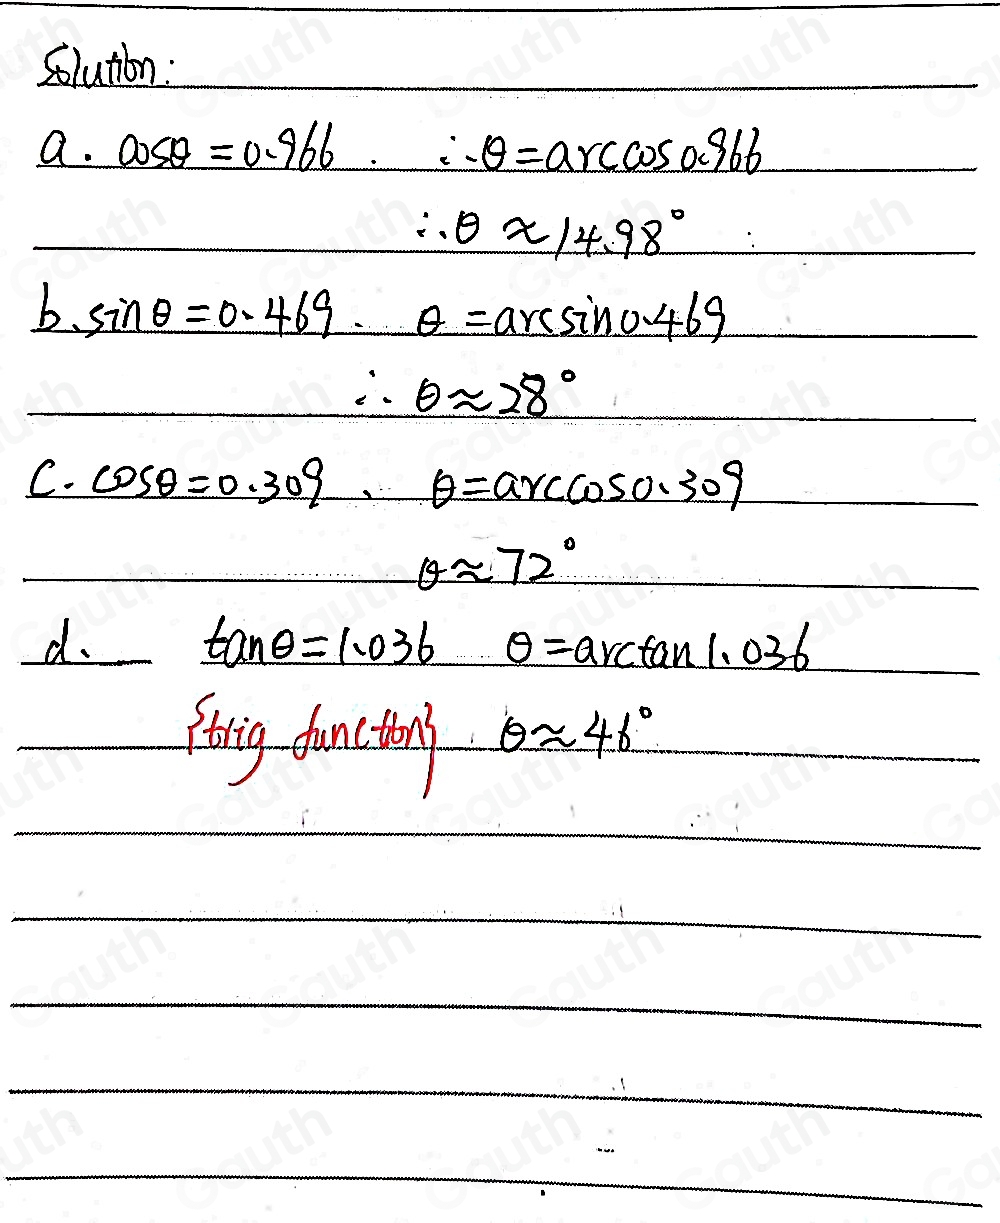 Solution:
a. cosθ = 0.966 . ∴ θ = arccos 0.966
∴ θ ≈ 14.98°
b. sin θ = 0.469. θ = arcsin 0.469
∴ θ ≈ 28°
C. cosθ = 0.309 . θ = arccos 0.309
θ ≈ 72°
d. tanθ = 1.036 θ = arctan 1.036
{trig function} θ ≈ 46°